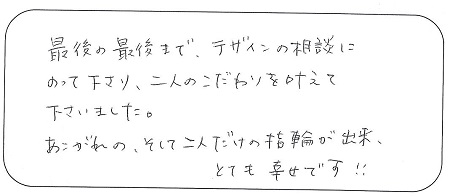 最後の最後まで、デザインの相談に
のって下さり、二人のこだわりを叶えて
下さいました。
あこがれの、そして二人だけの指輪が出来、
とても幸せです!!